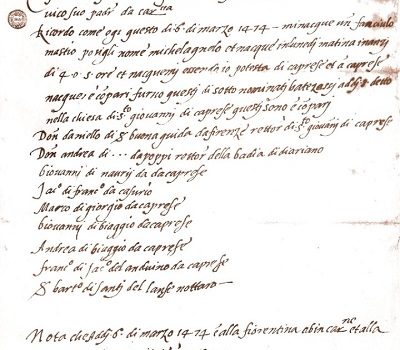 suo padr da
Ricordo come ogi questo di 6 di marzo 1474 minacque un fanciulo
mastio posigli nome michelagnolo et nacque in lunedj matina inanzj
di 4 o 5 ore et nacquemj essendo io potesta di caprese et a caprese
nacque e copari furno questj di sotto nominatj batezossj addj 8 detto
nella chiesa di sto giovannj di caprese questj sono e coparj
Don daniello di s buona guida da firenze rettor di sto giovannj di caprese
Don andrea di ... da poppi rettor della badia di diariano
Giovannj di da caprese
Jaco di franco da casurio
Marco di giorgio da caprese
Giovannj di biaggio da caprese
Andrea di biaggio da caprese
Franco di Jaco del anduino da caprese
S barto di santj del lanse nottaro
Nota che addj 6 di marzo 1474 è alla fiorentina abincarne et alla